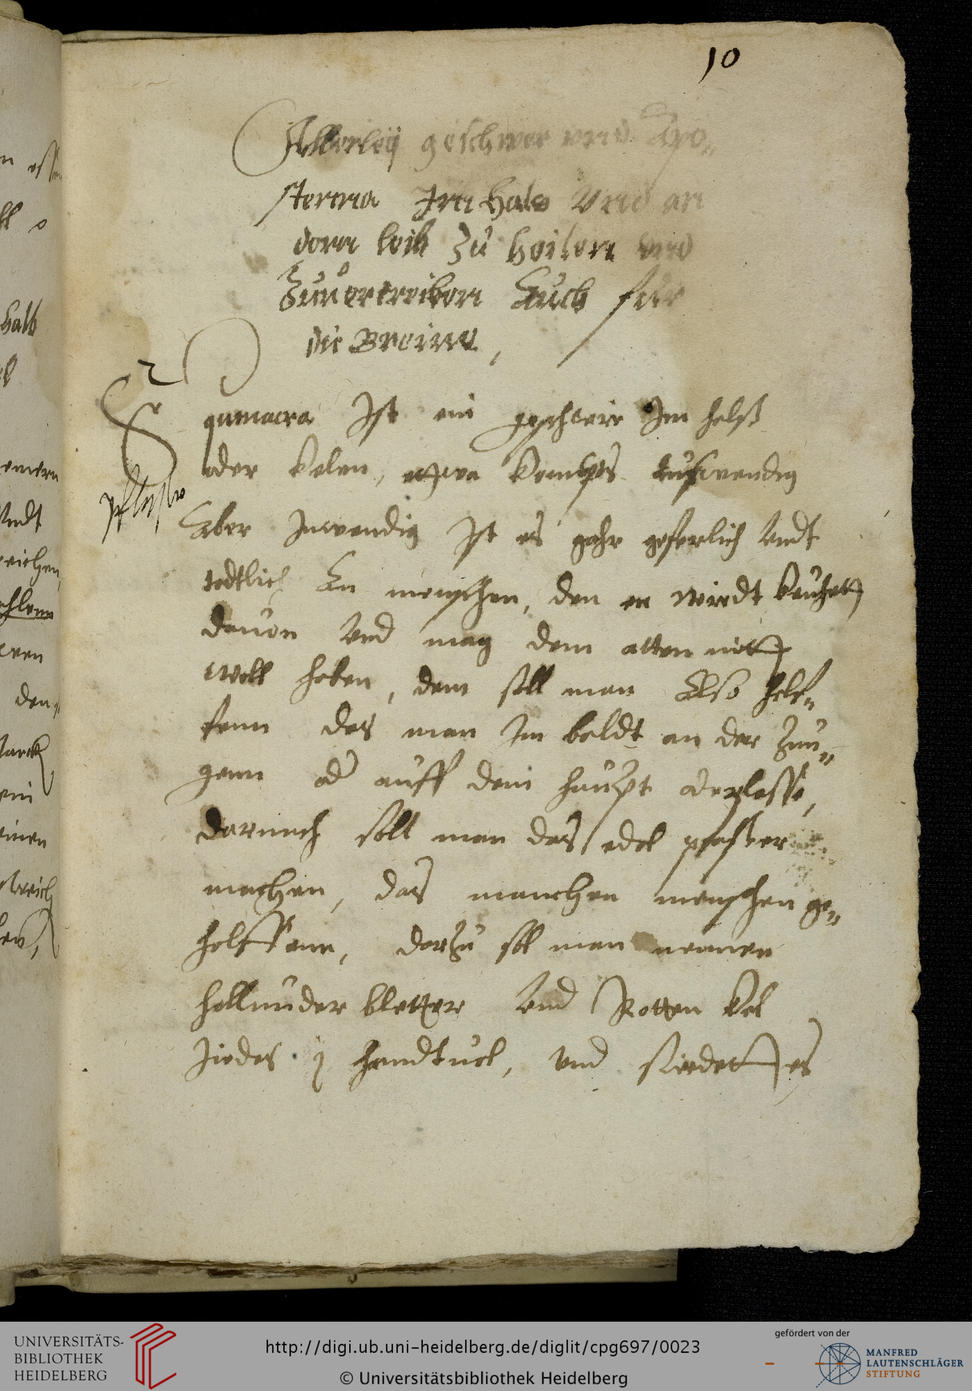 10
Allerleÿ geschwer vnd Apo„
sterma Im hals Vnd an
dern leib Zů heilen vnd
Zůuertreiben Auch für
die Breüne,
Squinacia Ist ein geschweir Im helß
oder kelen, etwa kompts außwendig
Pflaster
Aber Inwendig Ist es gahr geferlich Vndt
todtlich den menschen, den er wirdt keuchett
dauon Vnd mag dem atten nitt
woll haben, dem soll man Also helf„
fenn das man Im baldt an der Zun„
genn od auff dem haupt aderlasse,
darnach soll man das edel pflaster
machen, das manchen menschen ge„
holffenn, darZů sol man nemen
hollunder bletter Vnd Rotten kol
Jedes j handtuol, vnd siedett es
UNIVERSITÄTS-
BIBLIOTHEK
HEIDELBERG
http://digi.ub.uni-heidelberg.de/diglit/cpg697/0023
© Universitätsbibliothek Heidelberg
gefördert von der
MANFRED
LAUTENSCHLÄGER
STIFTUNG